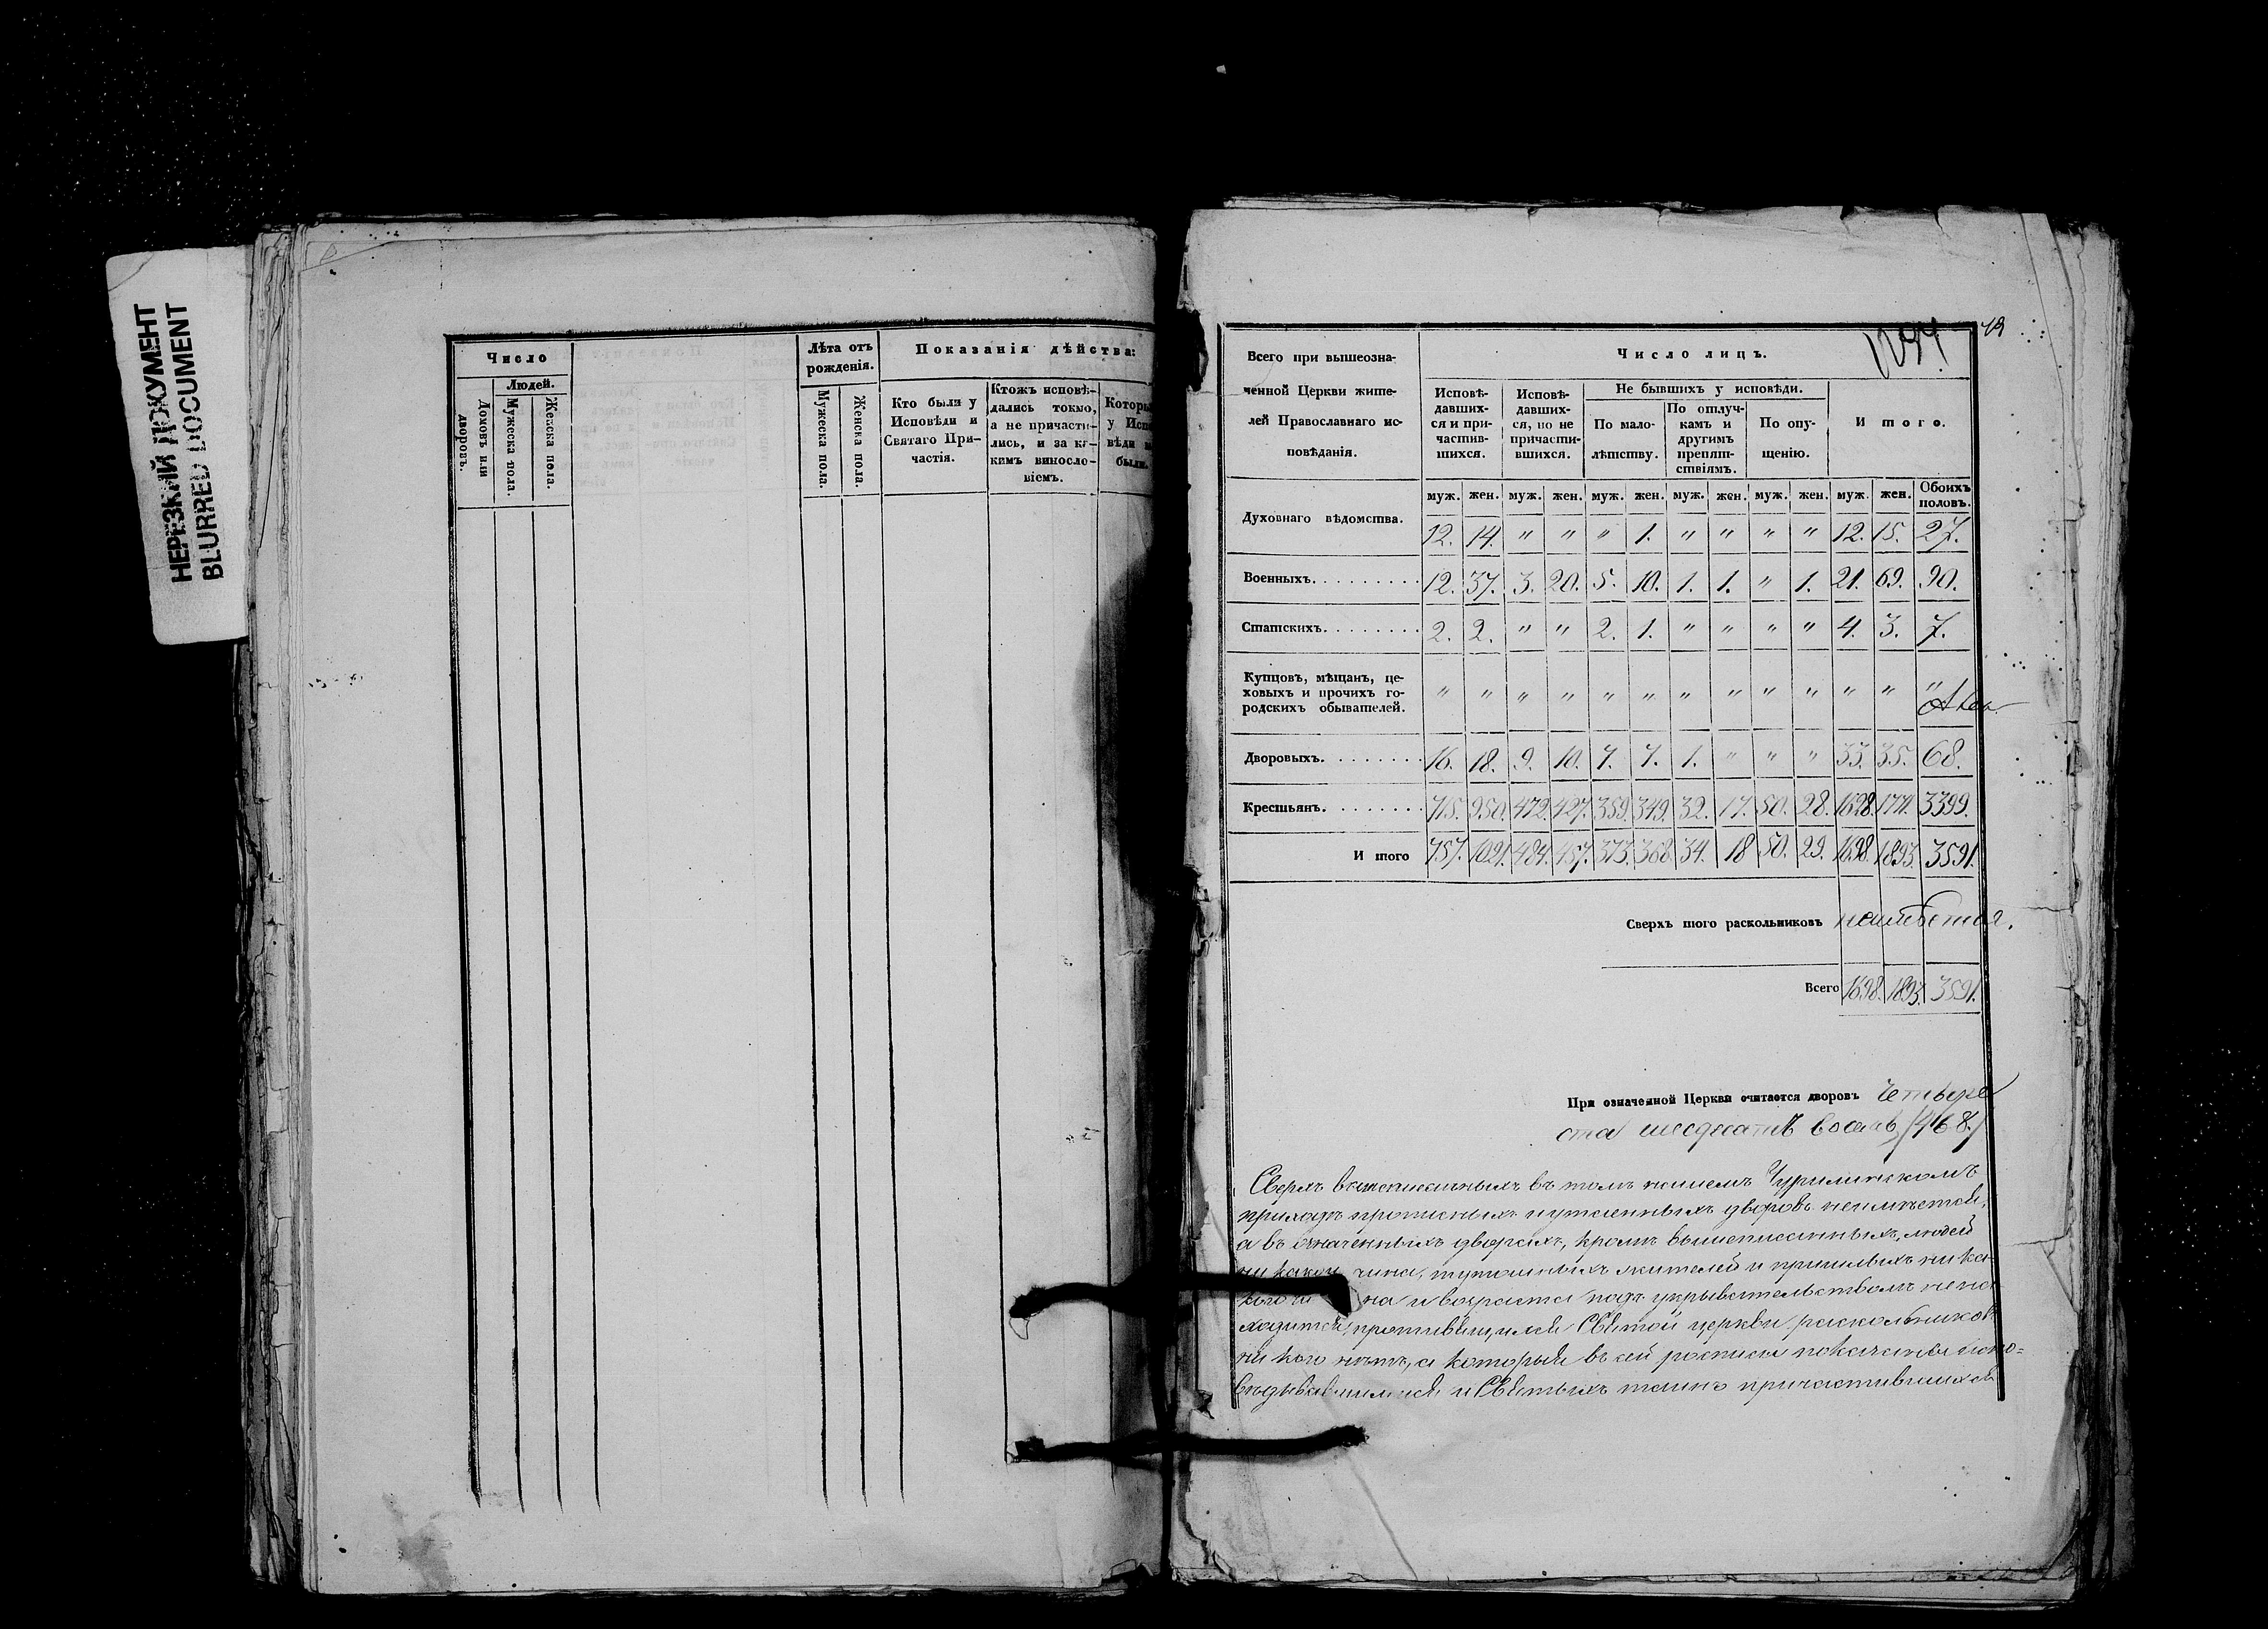 НЕРЕЗКИЙ ДОКУМЕНТ
BLURRED DOCUMENT
Число
Людей.
Домовъ или дворовъ.
Мужеска пола.
Женска пола.
Лѣта отъ рожденія.
Мужеска пола.
Женска пола.
Показанія дѣйства:
Кто были у
Исповѣди и
Святаго При-
частія.
Ктожъ исповѣ-
дались токмо,
а не причасти-
лись, и за ка-
кимъ винносло-
віемъ.
Которы
у Исп
вѣди н
были.
19
Всего при вышеозна-
ченной Церкви жите-
лей Православнаго ис-
повѣданія.
Число лицъ.
Исповѣ-
давших-
ся и при-
частив-
шихся.
Исповѣ-
давших-
ся, но не
причасти-
вшихся.
Не бывшихъ у исповѣди.
По мало-
лѣтству.
По отлуч-
камъ и
другимъ
препят-
ствіямъ.
По опу-
щенію.
Итого.
муж. жен. муж. жен. муж. жен. муж. жен. муж. жен. муж. жен. Обоихъ половъ.
Духовнаго вѣдомства. 12. 14. " " " 1. " " " " 12. 15. 27.
Военныхъ. 12. 37. 3. 20. 5. 10. 1. 1. " 1. 21. 69. 90.
Статскихъ. 2. 2. " " 2. 1. " " " " 4. 3. 7.
Купцовъ, мѣщанъ, це-
ховыхъ и прочихъ го-
родскихъ обывателей. " " " " " " " " " " " " "
Дворовыхъ. 16. 18. 9. 10. 7. 7. 1. " " " 33. 35. 68.
Крестьянъ. 715. 950. 472. 427. 359. 349. 32. 17. 50. 28. 1628. 1771. 3399.
И того 757. 1021. 484. 457. 373. 368. 34. 18 50. 29. 1698. 1893. 3591.
Сверхъ того раскольниковъ неимѣется.
Всего 1698. 1893. 3591.
При означенной Церкви считается дворовъ четыре
ста шесдесятъ восемь /468./
Сверхъ вышеписанныхъ въ томъ нашемъ Чурилинскомъ
приходѣ прописныхъ и утаенныхъ дворовъ неимѣется,
а въ означенныхъ дворахъ, кромѣ вышеписанныхъ, людей
чина, тутошныхъ жителей и пришлыхъ ни ка-
на и возраста подъ укрывательствомъ не на-
ходится, противящихся Святой церкви раскольниковъ
ни кого нѣтъ, а которыя въ сей росписи показаны испо-
вѣдывавшимися и Святыхъ таинъ причастившихся